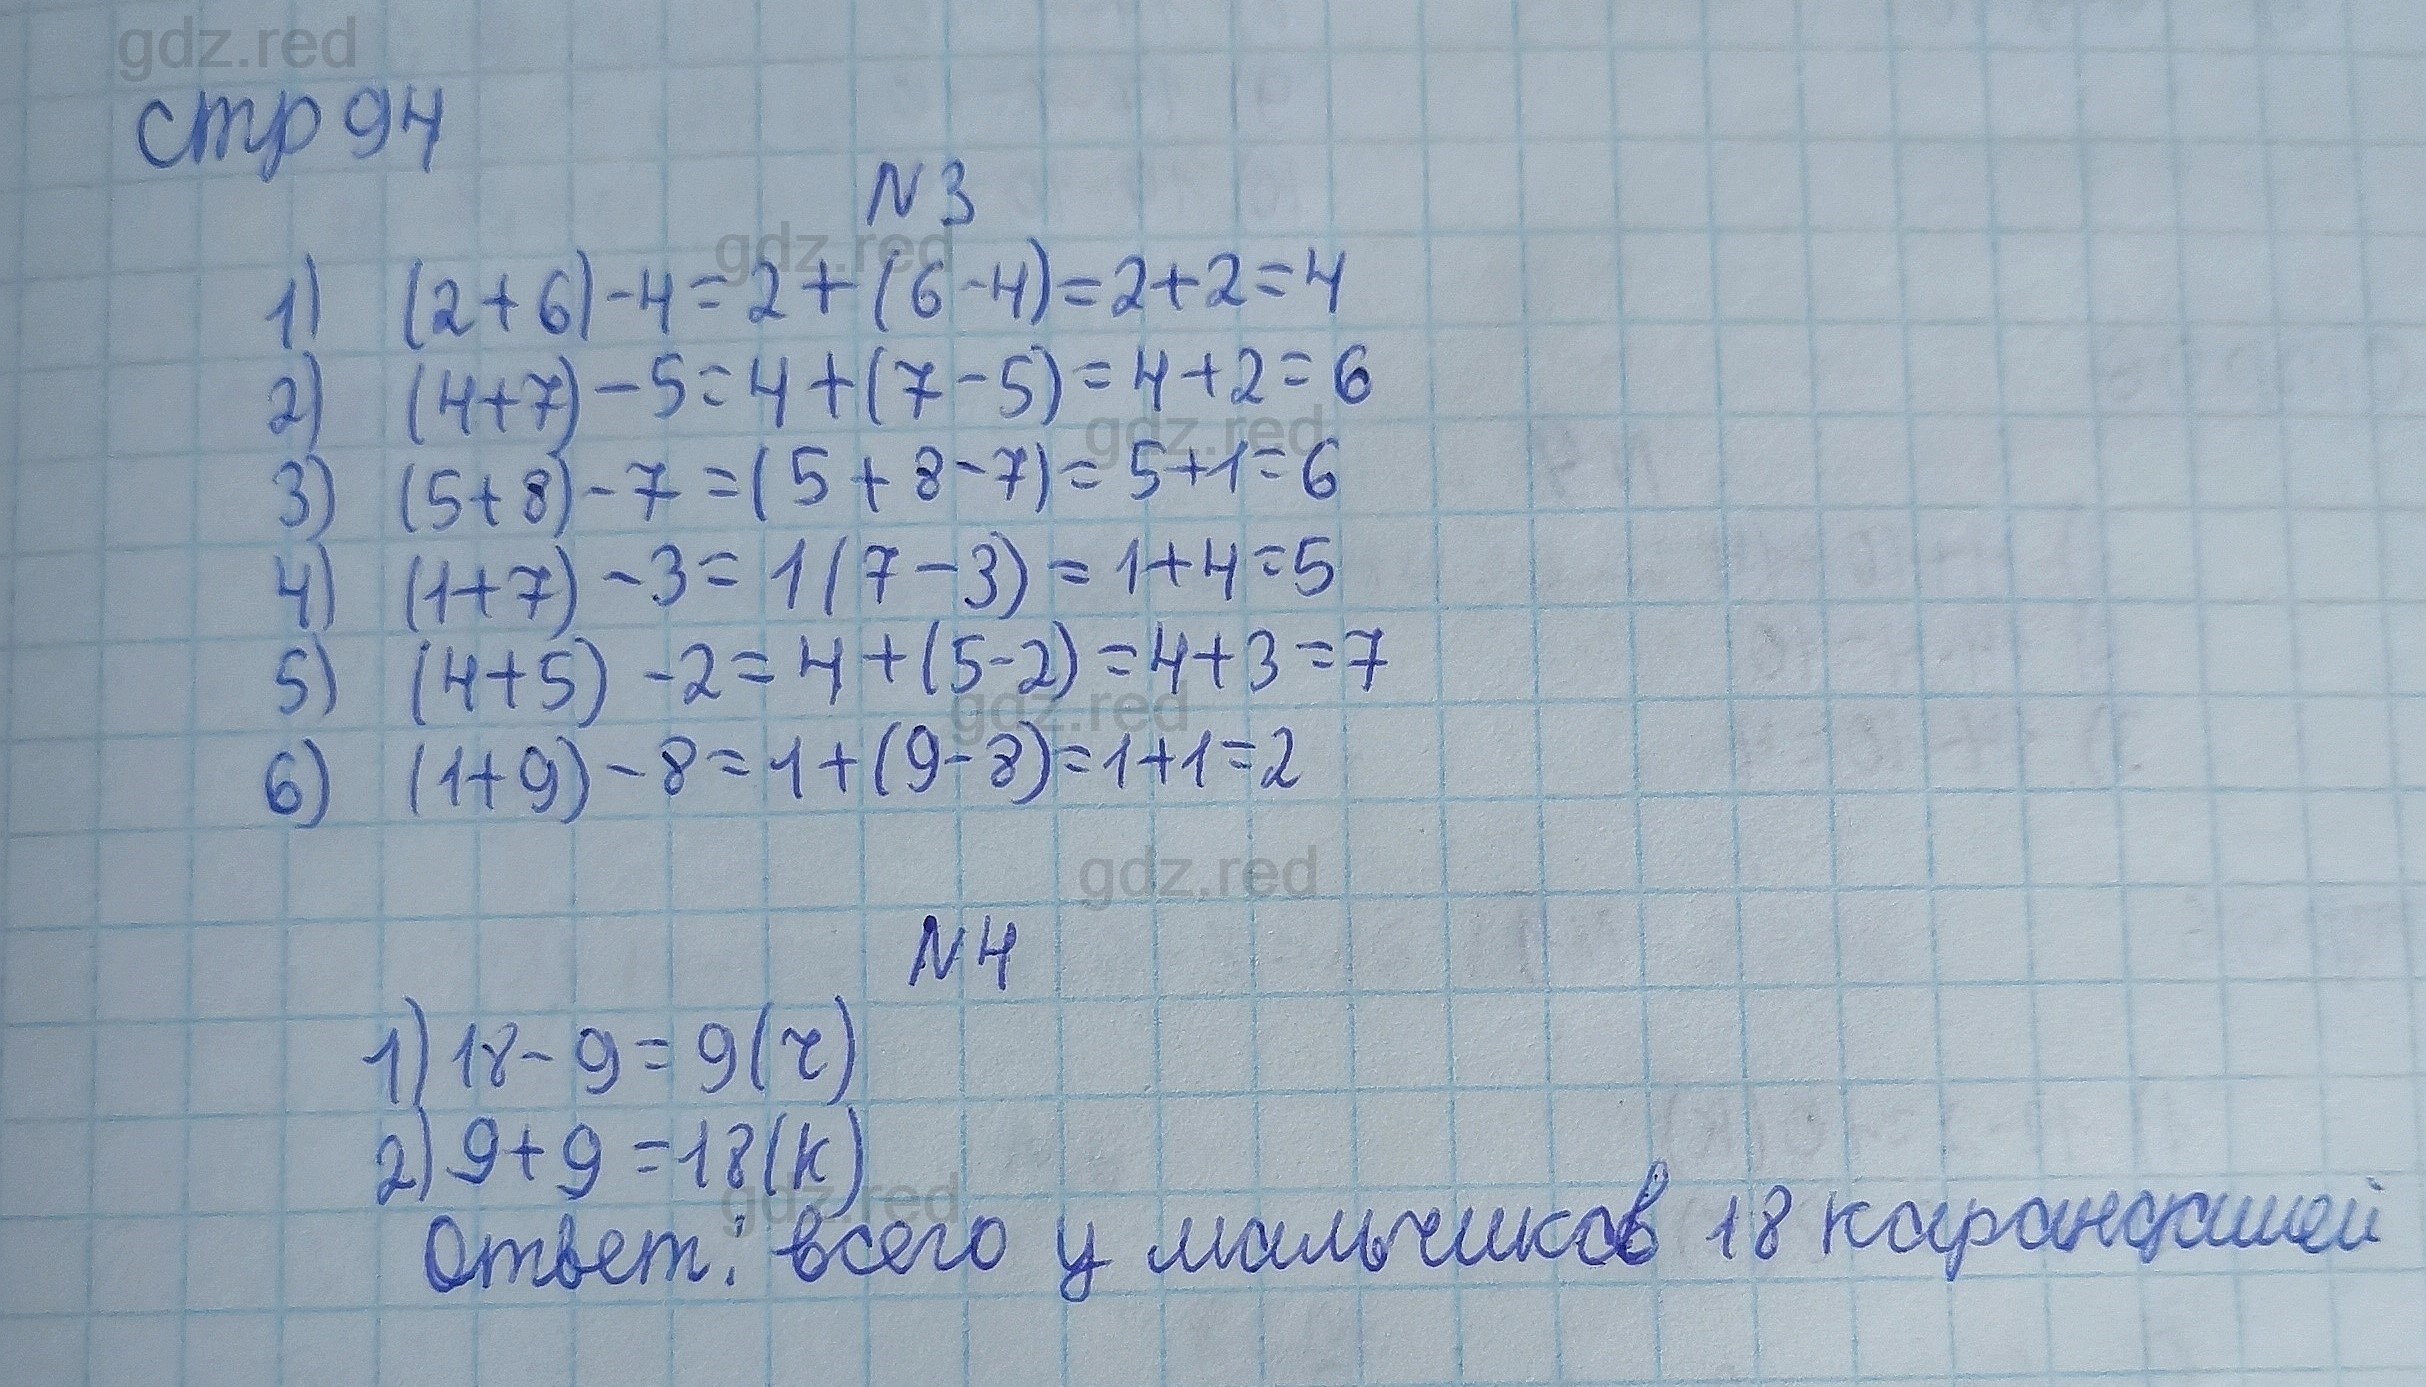 gdz.red
стр 94
N 3
gdz.red
1) (2+6)-4=2+(6-4)=2+2=4
2) (4+7)-5=4+(7-5)=4+2=6
gdz.red
3) (5+8)-7=(5+8-7)=5+1=6
4) (1+7)-3=1(7-3)=1+4=5
5) (4+5)-2=4+(5-2)=4+3=7
gdz.red
6) (1+9)-8=1+(9-8)=1+1=2
gdz.red
N 4
1) 18-9=9(ч)
2) 9+9=18(к)
gdz.red
Ответ: всего у мальчиков 18 карандашей